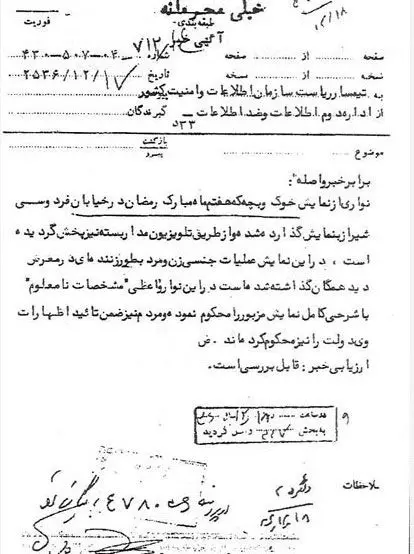 خیلی محرمانه
طبقه‌بندی
فوریت
صفحه از صفحه شماره ۴۰-۰۷-۵۰-۴۳۰
نسخه از نسخه تاریخ ۲۵۳۶/۱۲/۱۷
به تیمسار ریاست سازمان اطلاعات وامنیت کشور
از اداره دوم اطلاعات وضد اطلاعات ۵۳۳ گیرندگان
بازگشت
پیرو
موضوع
برابر خبر واصله:
نواری از نمایش خوک وبچه که هفتم ماه مبارک رمضان در خیابان فردوسی
شیراز بنمایش گذارده شده و از طریق تلویزیون مدار بسته نیز پخش گردیده
است ، در این نمایش عملیات جنسی زن ومرد بطور زننده ای در معرض
دید همگان گذاشته شده است در این نوار واعظی "مشخصات نامعلوم"
با شرحی کامل نمایش مزبور را محکوم نموده ومردم نیز ضمن تائید اظهارات
وی دولت را نیز محکوم کرده اند . ض
ارزیابی خبر : قابل بررسی است .
به بخش وارد گردید
ملاحظات